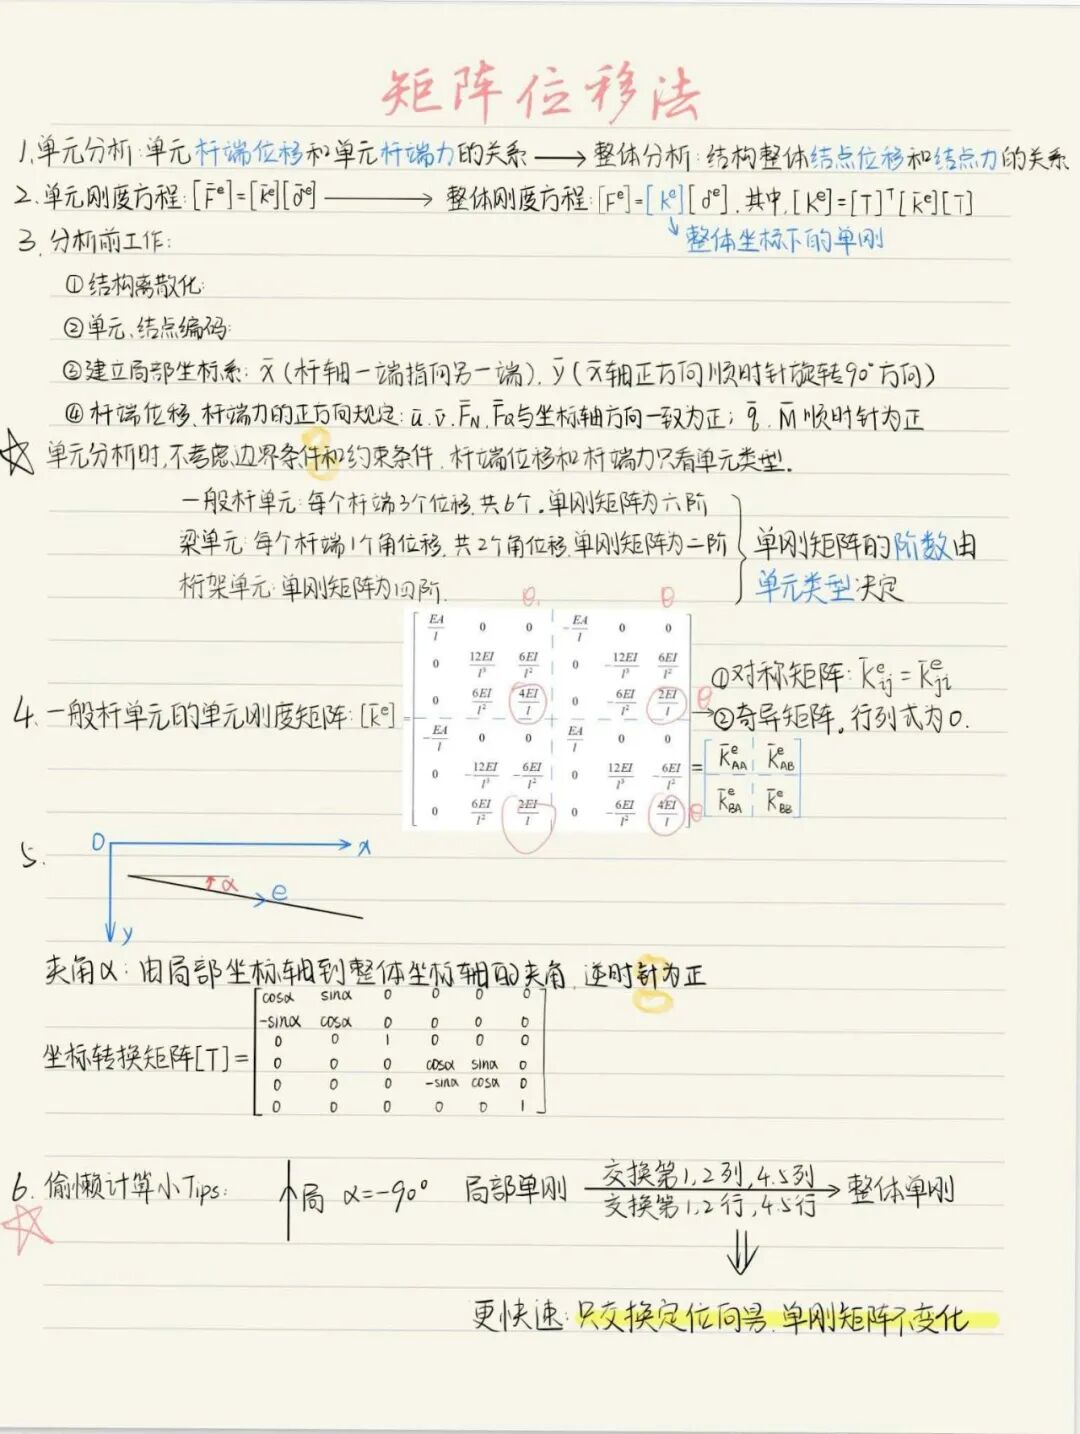 矩阵位移法
1. 单元分析:单元杆端位移和单元杆端力的关系 ⟶ 整体分析:结构整体结点位移和结点力的关系
2. 单元刚度方程:[F̄ᵉ]=[k̄ᵉ][δ̄ᵉ] ⟶ 整体刚度方程:[Fᵉ]=[kᵉ][δᵉ],其中,[kᵉ]=[T]ᵀ[k̄ᵉ][T]
↘整体坐标下的单刚
3. 分析前工作:
①结构离散化:
②单元、结点编码:
③建立局部坐标系: x̄(杆轴一端指向另一端). ȳ(x̄轴正方向顺时针旋转90°方向)
④杆端位移、杆端力的正方向规定:ū.v̄.F̄N.F̄Q与坐标轴方向一致为正; q̄. M̄顺时针为正
☆ 单元分析时,不考虑边界条件和约束条件.杆端位移和杆端力只看单元类型.
一般杆单元:每个杆端3个位移,共6个。单刚矩阵为六阶
梁单元:每个杆端1个角位移,共2个角位移,单刚矩阵为二阶
桁架单元:单刚矩阵为四阶.
单刚矩阵的阶数由
单元类型决定
θ₁ θ
EA/l 0 0 -EA/l 0 0
0 12EI/l³ 6EI/l² 0 -12EI/l³ 6EI/l²
0 6EI/l² 4EI/l 0 -6EI/l² 2EI/l θ
-EA/l 0 0 EA/l 0 0
0 -12EI/l³ -6EI/l² 0 12EI/l³ -6EI/l²
0 6EI/l² 2EI/l 0 -6EI/l² 4EI/l θ
4. 一般杆单元的单元刚度矩阵:[k̄ᵉ]=
→①对称矩阵: k̄ᵉij = k̄ᵉji
②奇异矩阵。行列式为0.
= k̄ᵉAA k̄ᵉAB
k̄ᵉBA k̄ᵉBB
5.
O x
α e
y
夹角α:由局部坐标轴到整体坐标轴的夹角,逆时针为正
坐标转换矩阵[T]=
cosα sinα 0 0 0 0
-sinα cosα 0 0 0 0
0 0 1 0 0 0
0 0 0 cosα sinα 0
0 0 0 -sinα cosα 0
0 0 0 0 0 1
6. 偷懒计算小Tips: ↑局 α=-90° 局部单刚 ⟶ 整体单刚
交换第1,2列,4.5列
交换第1,2行,4.5行
⇓
☆
更快速:只交换定位向号.单刚矩阵不变化